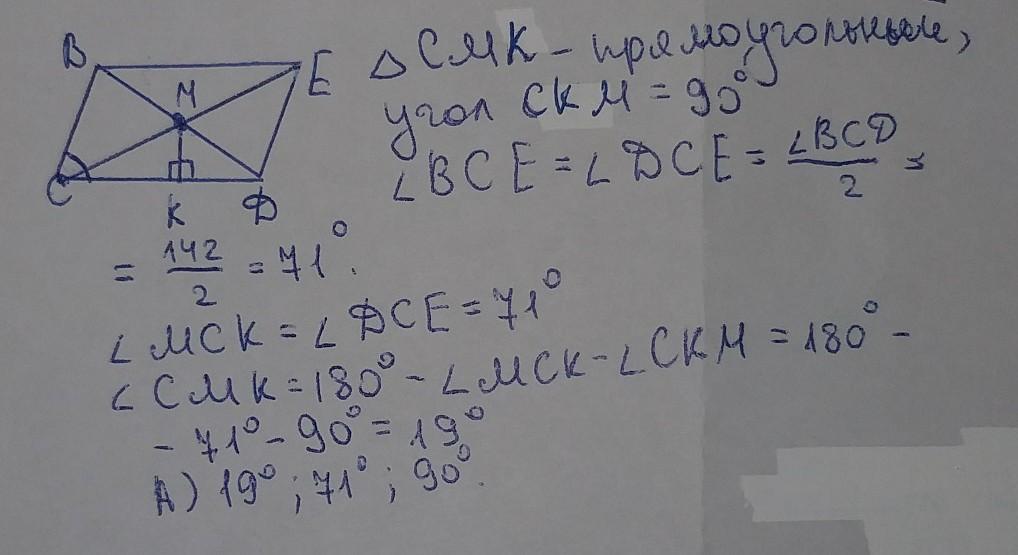 B
E
M
C
K
D
△ CMK – прямоугольный,
угол CKM = 90°
∠BCE = ∠DCE = ∠BCD/2 =
= 142/2 = 71°.
∠MCK = ∠DCE = 71°
∠CMK = 180° – ∠MCK – ∠CKM = 180° –
– 71° – 90° = 19°
A) 19°; 71°; 90°.